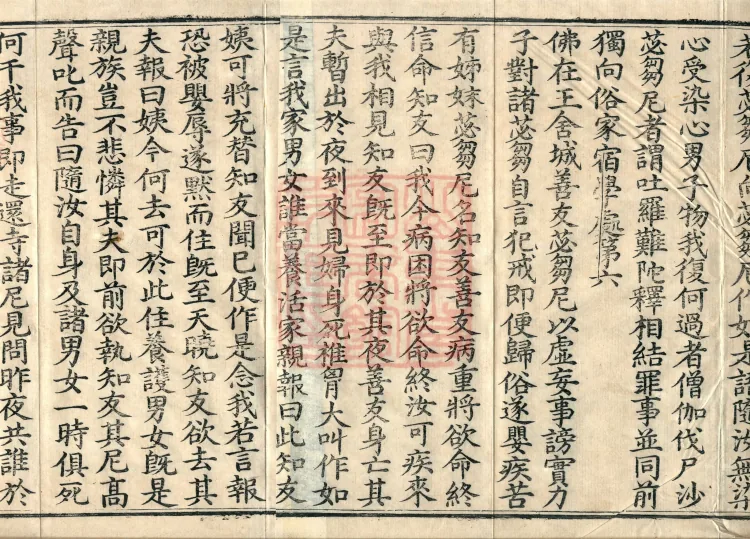 苾芻尼作如是語隨汝無染
心受染心男子物我復何過者僧伽伐尸沙
苾芻尼者謂吐羅難陀釋相結罪事並同前
獨向俗家宿學處第六
佛在王舍城善友苾芻尼以虛妄事謗實力
子對諸苾芻自言犯戒即便歸俗遂嬰疾苦
有姊妹苾芻尼名知友善友病重將欲命終
信命知友曰我今病困將欲命終汝可疾來
與我相見知友旣至即於其夜善友身亡其
夫暫出於夜到來見婦身死椎胷大叫作如
是言我家男女誰當養活家親報曰此知友
姨可將充替知友聞已便作是念我若言報
恐被嬰辱遂默而住旣至天曉知友欲去其
夫報曰姨今何去可於此住養護男女旣是
親族豈不悲憐其夫即前欲執知友其尼高
聲叱而告曰隨汝自身及諸男女一時俱死
何干我事即走還寺諸尼見問昨夜共誰於